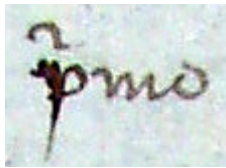 p̃mo